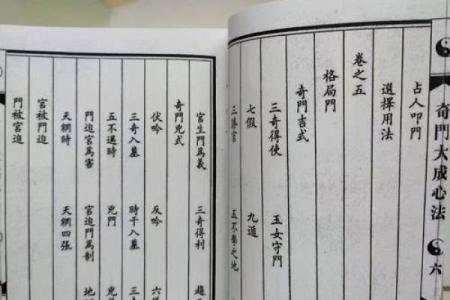 奇門大成心法 六
占人叩門
選擇用法
卷之五
格局門
奇門吉式
三奇得使 玉女守門
七假 九遁
三勝宮 五不擊之地
宮生門為義 三奇得利
奇門凶式
伏吟 反吟 六
三奇入墓 時干入墓 三
五不遇時 凶門
門迫宮為害 宮迫門為制 地
天網時 天網四張
宮被門迫
門被宮迫